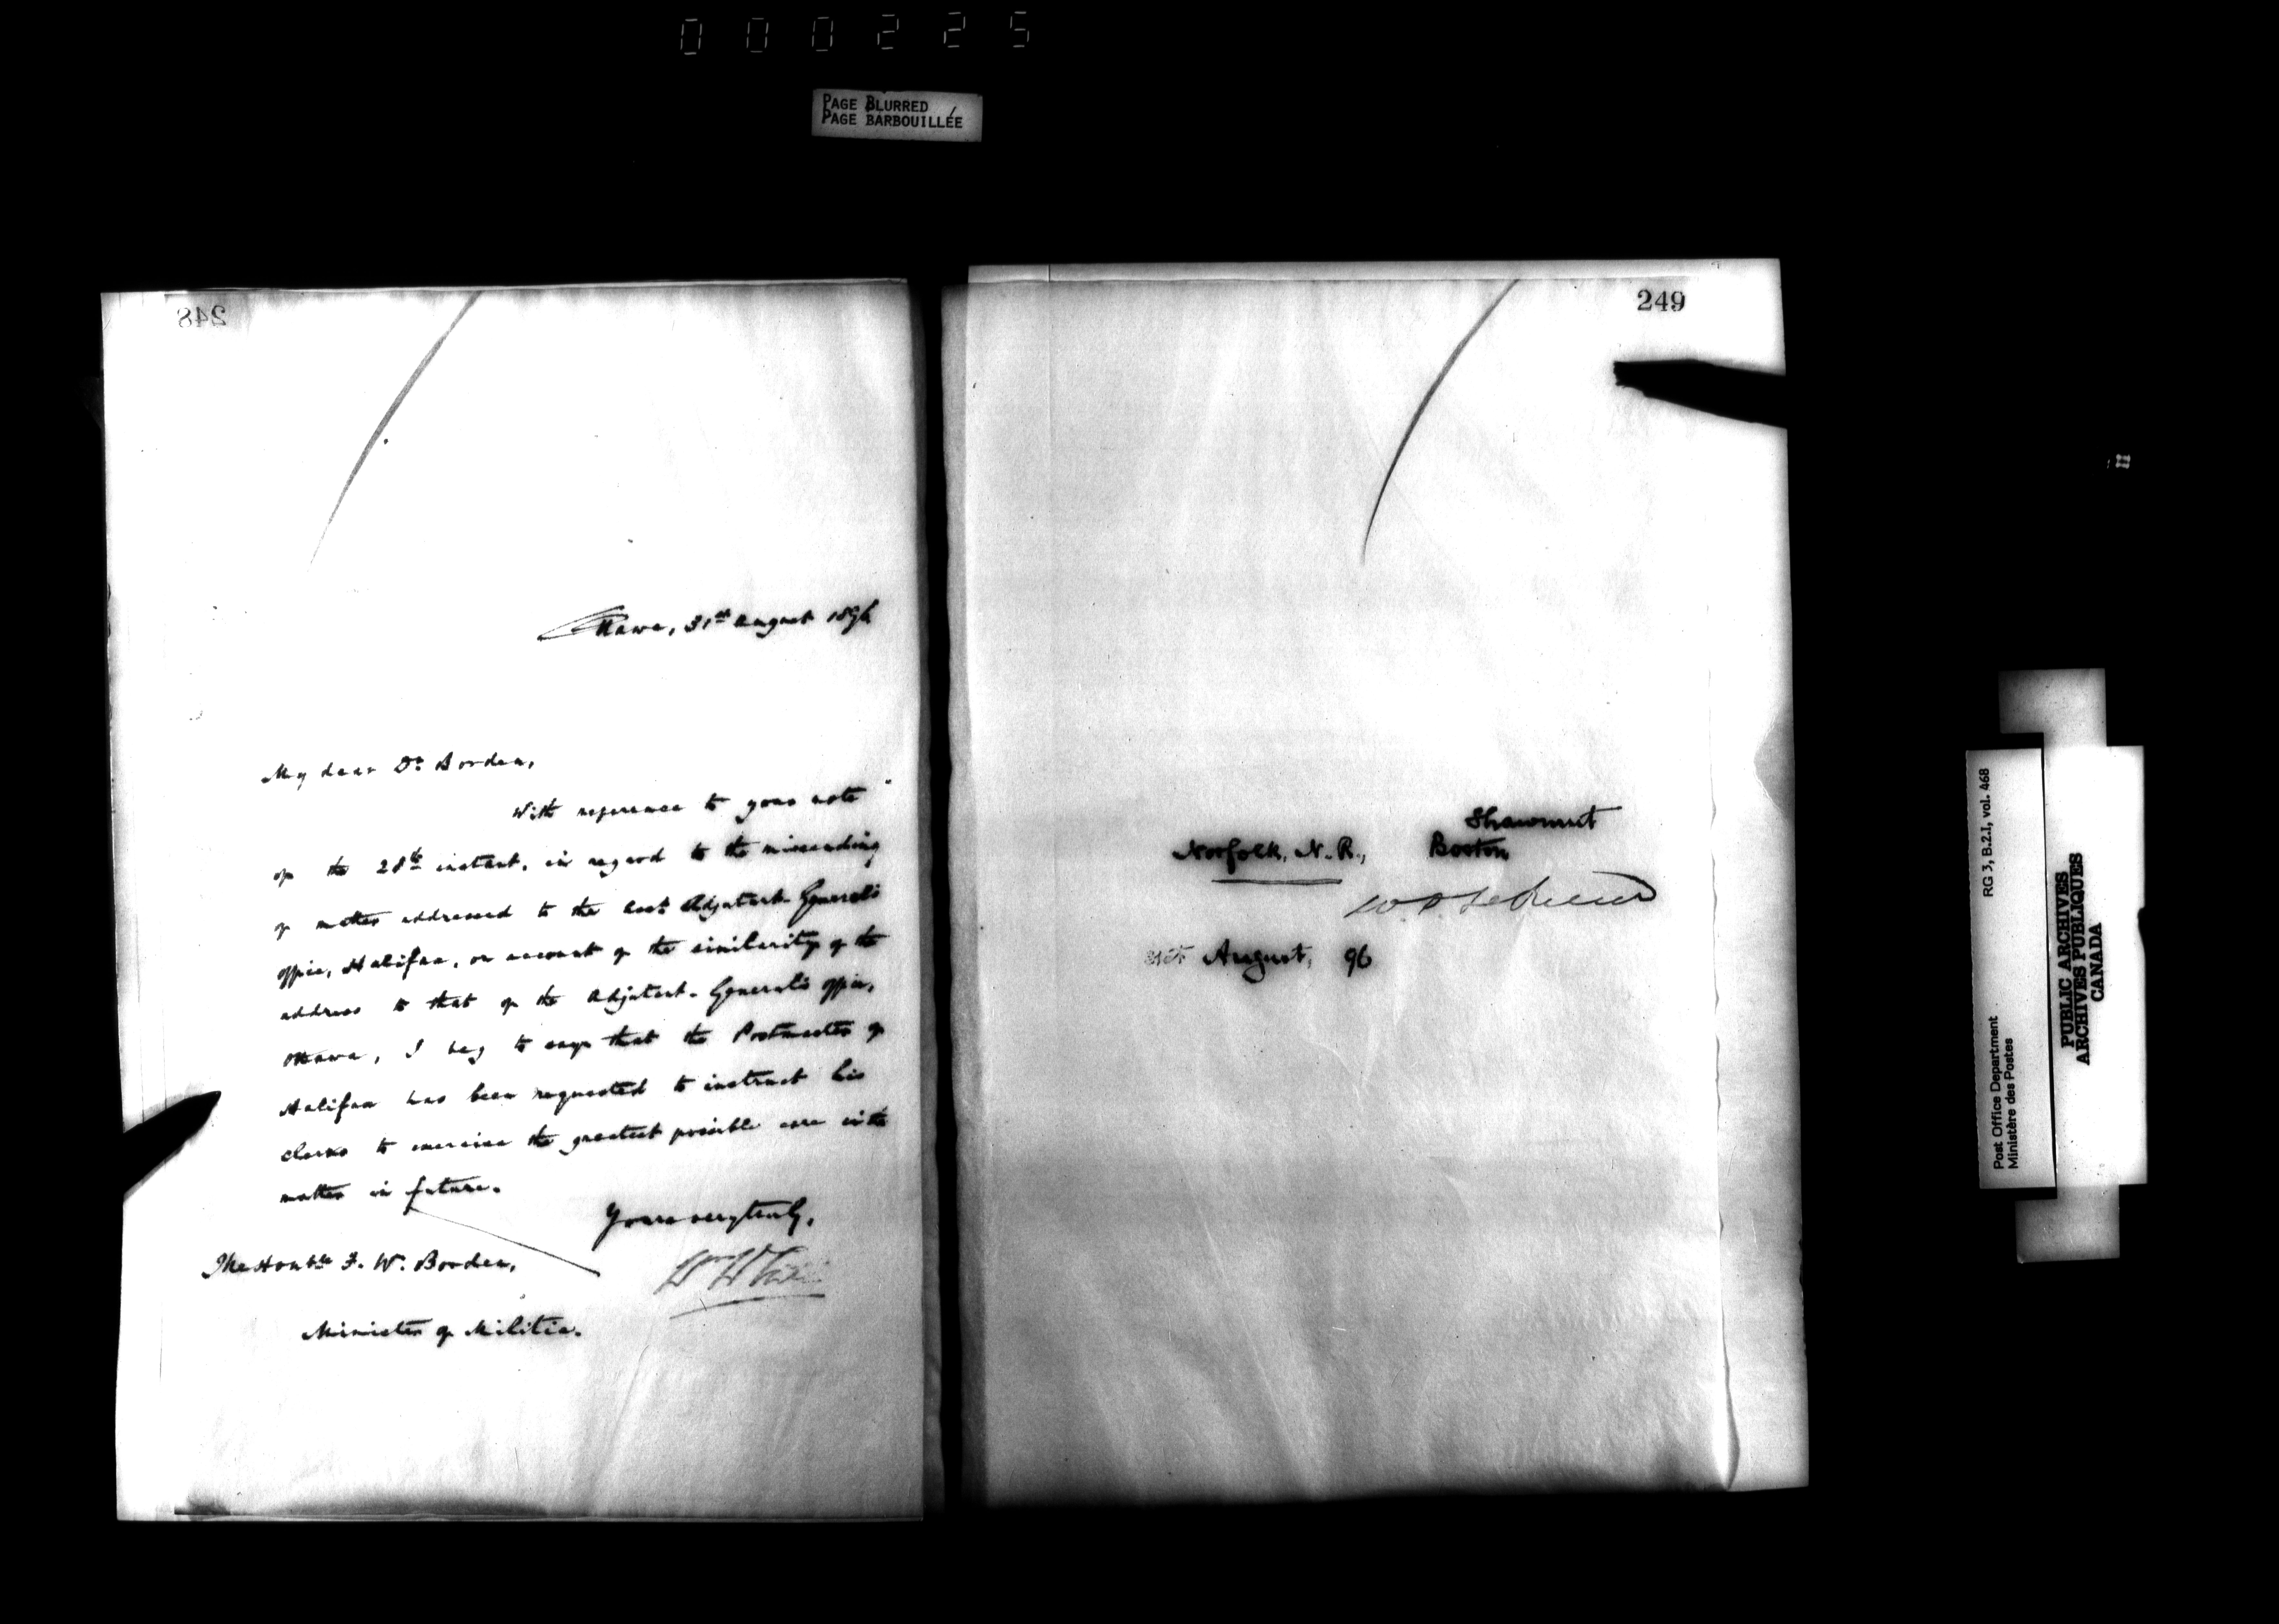 000225
PAGE BLURRED
PAGE BARBOUILLÉE
248
Ottawa, 31st August 1896
My dear Dr. Borden,
With reference to your note
of the 28th instant, in regard to the missending
of matter addressed to the Asst. Adjutant-General's
office, Halifax, on account of the similarity of the
address to that of the Adjutant-General's office,
Ottawa, I beg to say that the Postmaster of
Halifax has been requested to instruct his
clerks to exercise the greatest possible care in the
matter in future.
Yours very truly,
Wm White
The Honble F. W. Borden,
Minister of Militia.
249
Shawmut
Norfolk, N. R., Boston
31st August, 96
RG 3, B.2.I, vol. 468
Post Office Department
Ministère des Postes
PUBLIC ARCHIVES
ARCHIVES PUBLIQUES
CANADA